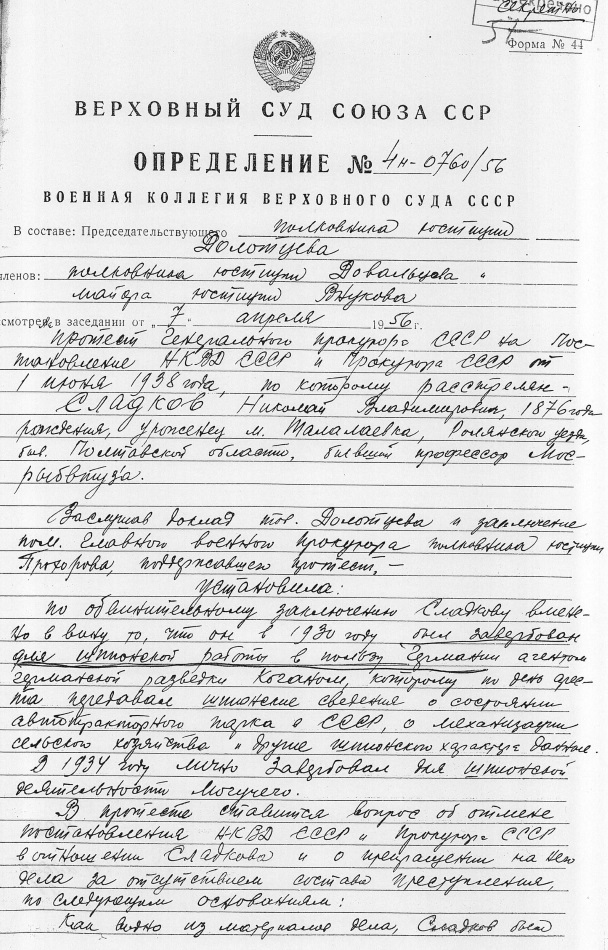 Секретно
57
Форма № 44
ВЕРХОВНЫЙ СУД СОЮЗА ССР
ОПРЕДЕЛЕНИЕ № 4н-0760/56
ВОЕННАЯ КОЛЛЕГИЯ ВЕРХОВНОГО СУДА СССР
В составе: Председательствующего полковника юстиции
Долотцева
членов: полковника юстиции Довальцева и
майора юстиции Внукова
рассмотрев в заседании от „7" апреля 1956 г.
Протест Генерального прокурора СССР на пос-
тановление НКВД СССР и Прокурора СССР от
1 июня 1938 года, по которому расстрелян -
Сладков Николай Владимирович, 1876 года
рождения, уроженец м. Талалаевка, Ромянского уезда,
быв. Полтавской области, бывший профессор Мос-
рыбвтуза.
Заслушав доклад тов. Долотцева и заключение
пом. Главного военного прокурора полковника юстиции
Прохорова, поддержавшего протест, -
установила:
по обвинительному заключению Сладкову вмене-
но в вину то, что он в 1930 году был завербован
для шпионской работы в пользу Германии агентом
германской разведки Коганом, которому по день арес-
та передавал шпионские сведения о состоянии
автотракторного парка в СССР, о механизации
сельского хозяйства и другие шпионского характера данные.
В 1934 году лично завербовал для шпионской
деятельности Могучего.
В протесте ставится вопрос об отмене
постановления НКВД СССР и Прокурора СССР
в отношении Сладкова и о прекращении на него
дела за отсутствием состава преступления,
по следующим основаниям:
Как видно из материалов дела, Сладков был